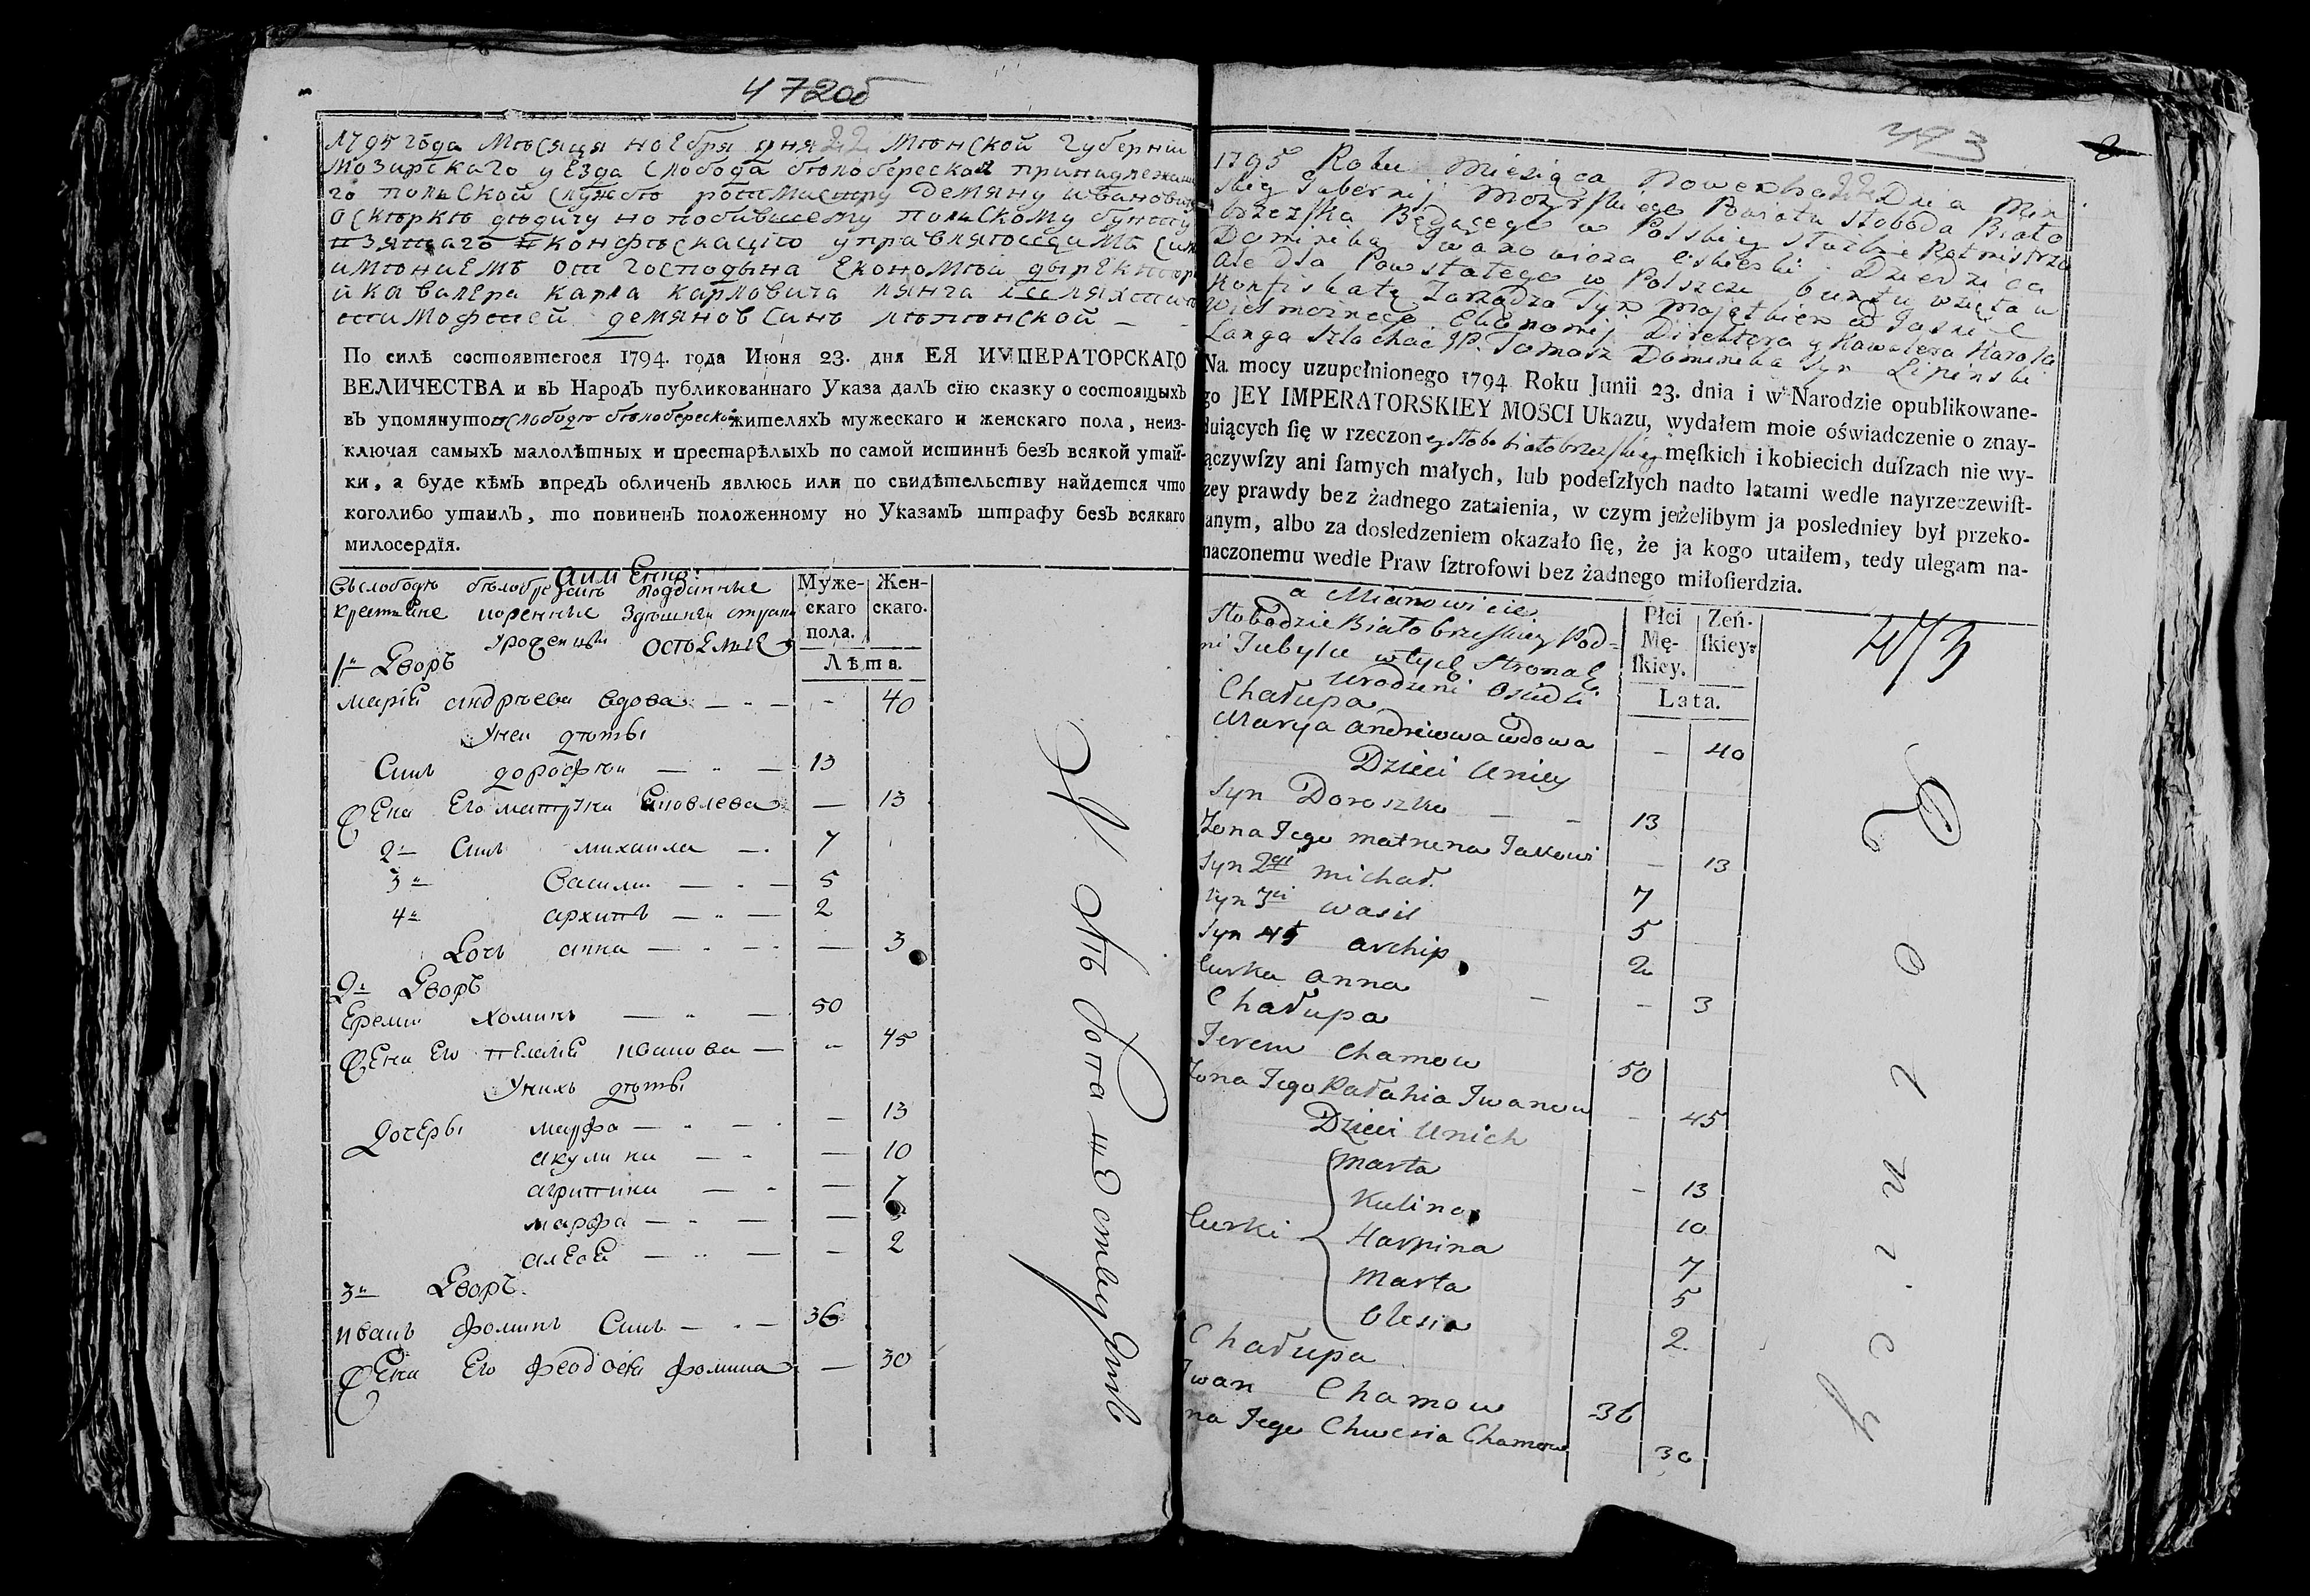 472об
1795 года Мѣсяця ноебря дня 22 Мѣнской губерніи
Мозирскаго уЕзда Слобода бѣлобереская принадлежаща
го полской службѣ ротмистру Демяну Ивановичу
Оскѣркѣ дѣдичу но по бившему полскому бунту
взятаго в конфѣскацію управляющима Сим
имѣниемъ от господына Економѣи дырЕктор
и кавалера Карла Карловича лянга
демянов Синъ
По силѣ состоявшегося 1794. года Июня 23. дня ЕЯ ИМПЕРАТОРСКАГО
ВЕЛИЧЕСТВА и въ Народъ публикованнаго Указа далъ сїю сказку о состоящыхъ
въ упомянутой слободѣ бѣлобереской жителяхъ мужескаго и женскаго пола, неиз-
ключая самыхъ малолѣтных и престарѣлыхъ по самой истиннѣ безъ всякой утай-
ки, а буде кѣмъ впредъ обличенъ явлюсь или по свидѣтельству найдется что
коголибо утаилъ, то повиненъ положенному но Указамъ штрафу безъ всякаго
милосердїя.
аимЕнно:
Въ слободѣ подданные
крестияне коренные здѣшней страни
урожденны
Муже-
скаго
пола.
Жен-
скаго.
Лѣта.
1й Дворъ
марія андрѣева вдова — - 40
Унеи дѣты
Синъ дорофѣи — 13
Жена Его матруна Яковлева — 13
2й Синъ михаила — 7
3й Василии — 5
4й архипъ — 2
Дочь анна — — 3
2й Дворъ
Еремии Хоминъ — 50
Жена Его пелагія иванова — 45
Унихъ дѣты
Дочеры марфа — — 13
акулина — — 10
агрипина — — 7
марфа — —
алЕся — — 2
3й Дворъ
иванъ фоминъ Синъ — 36
Жена Его феодося фомина — 30
473
1795 Roku Miesiąca Nowembra 22 Dnia Miń
skiey Gubernij Mozyrskiego Powiatu Słoboda Biało
brzeska Będącego w Polskiey Służbie Rotmistrza
Dominika Iwanowicza Oskierki Dziedzica
ale dla Powstałego w Polszcze buntu wzięta w
Konfiskatę Zarządza Tym Majątkiem od Jaśnie
Wielmożnego Ekonomij Direktora y Kawalera Karola
Langa Szlachcic JP. Tomasz Dominika Syn Lipinski
Na mocy uzupełnionego 1794 Roku Junii 23. dnia i w Narodzie opublikowane-
go JEY IMPERATORSKIEY MOSCI Ukazu, wydałem moie oświadczenie o znay-
duiących się w rzeczoney Słobo białobrzeskiey męſkich i kobiecich duſzach nie wy-
ączywſzy ani ſamych małych, lub podeſzłych nadto latami wedle nayrzeczewiſt-
zey prawdy bez żadnego zataienia, w czym jeżelibym ja posledniey był przeko-
anym, albo za dosledzeniem okazało ſię, że ja kogo utaiłem, tedy ulegam na-
naczonemu wedle Praw ſztrofowi bez żadnego miłoſierdzia.
a Mianowicie
Słobodzie Białobrzeskiey Pod-
ni Tubylcy w tych Stronach
Urodzeni Osiedli
Płci
Mę-
ſkiey.
Żeń-
ſkiey.
Lata.
473
Chałupa
Marya Andreiowa wdowa - 40
Dzieci Uniey
Syn Doroszko - - 13
Żona Jego Matruna Jakowi - 13
Syn 2gi Michał 7
Syn 3ci Wasil 5
Syn 4ty Archip 2
Curka Anna - - 3
Chałupa
Jerem Chamow 50
Żona Jego Pałahia Iwanow - 45
Dzieci Unich
Marta - 13
Kulina 10
Curki Harpina 7
Marta 5
Olesia 2
Chałupa
Iwan Chamow 36
na Jego Chwesia Chamow 30